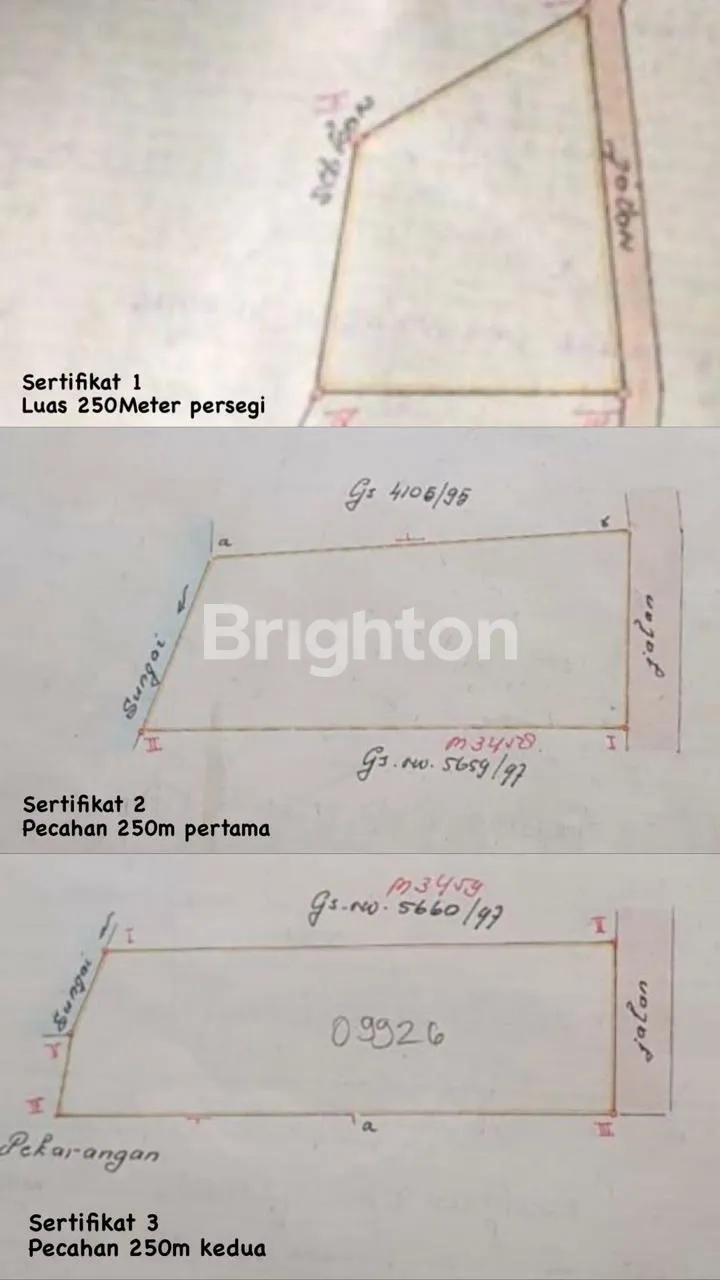 II
Selokan
Jalan
Sertifikat 1
Luas 250Meter persegi
Gs 4105/95
a
Sungai
jalan
Brighton
III
M3458.
I
Gs. no. 5659/97
Sertifikat 2
Pecahan 250m pertama
M3459
Gs. no. 5660/97
I
II
Sungai
09926
jalan
a
III
Pekarangan
Sertifikat 3
Pecahan 250m kedua